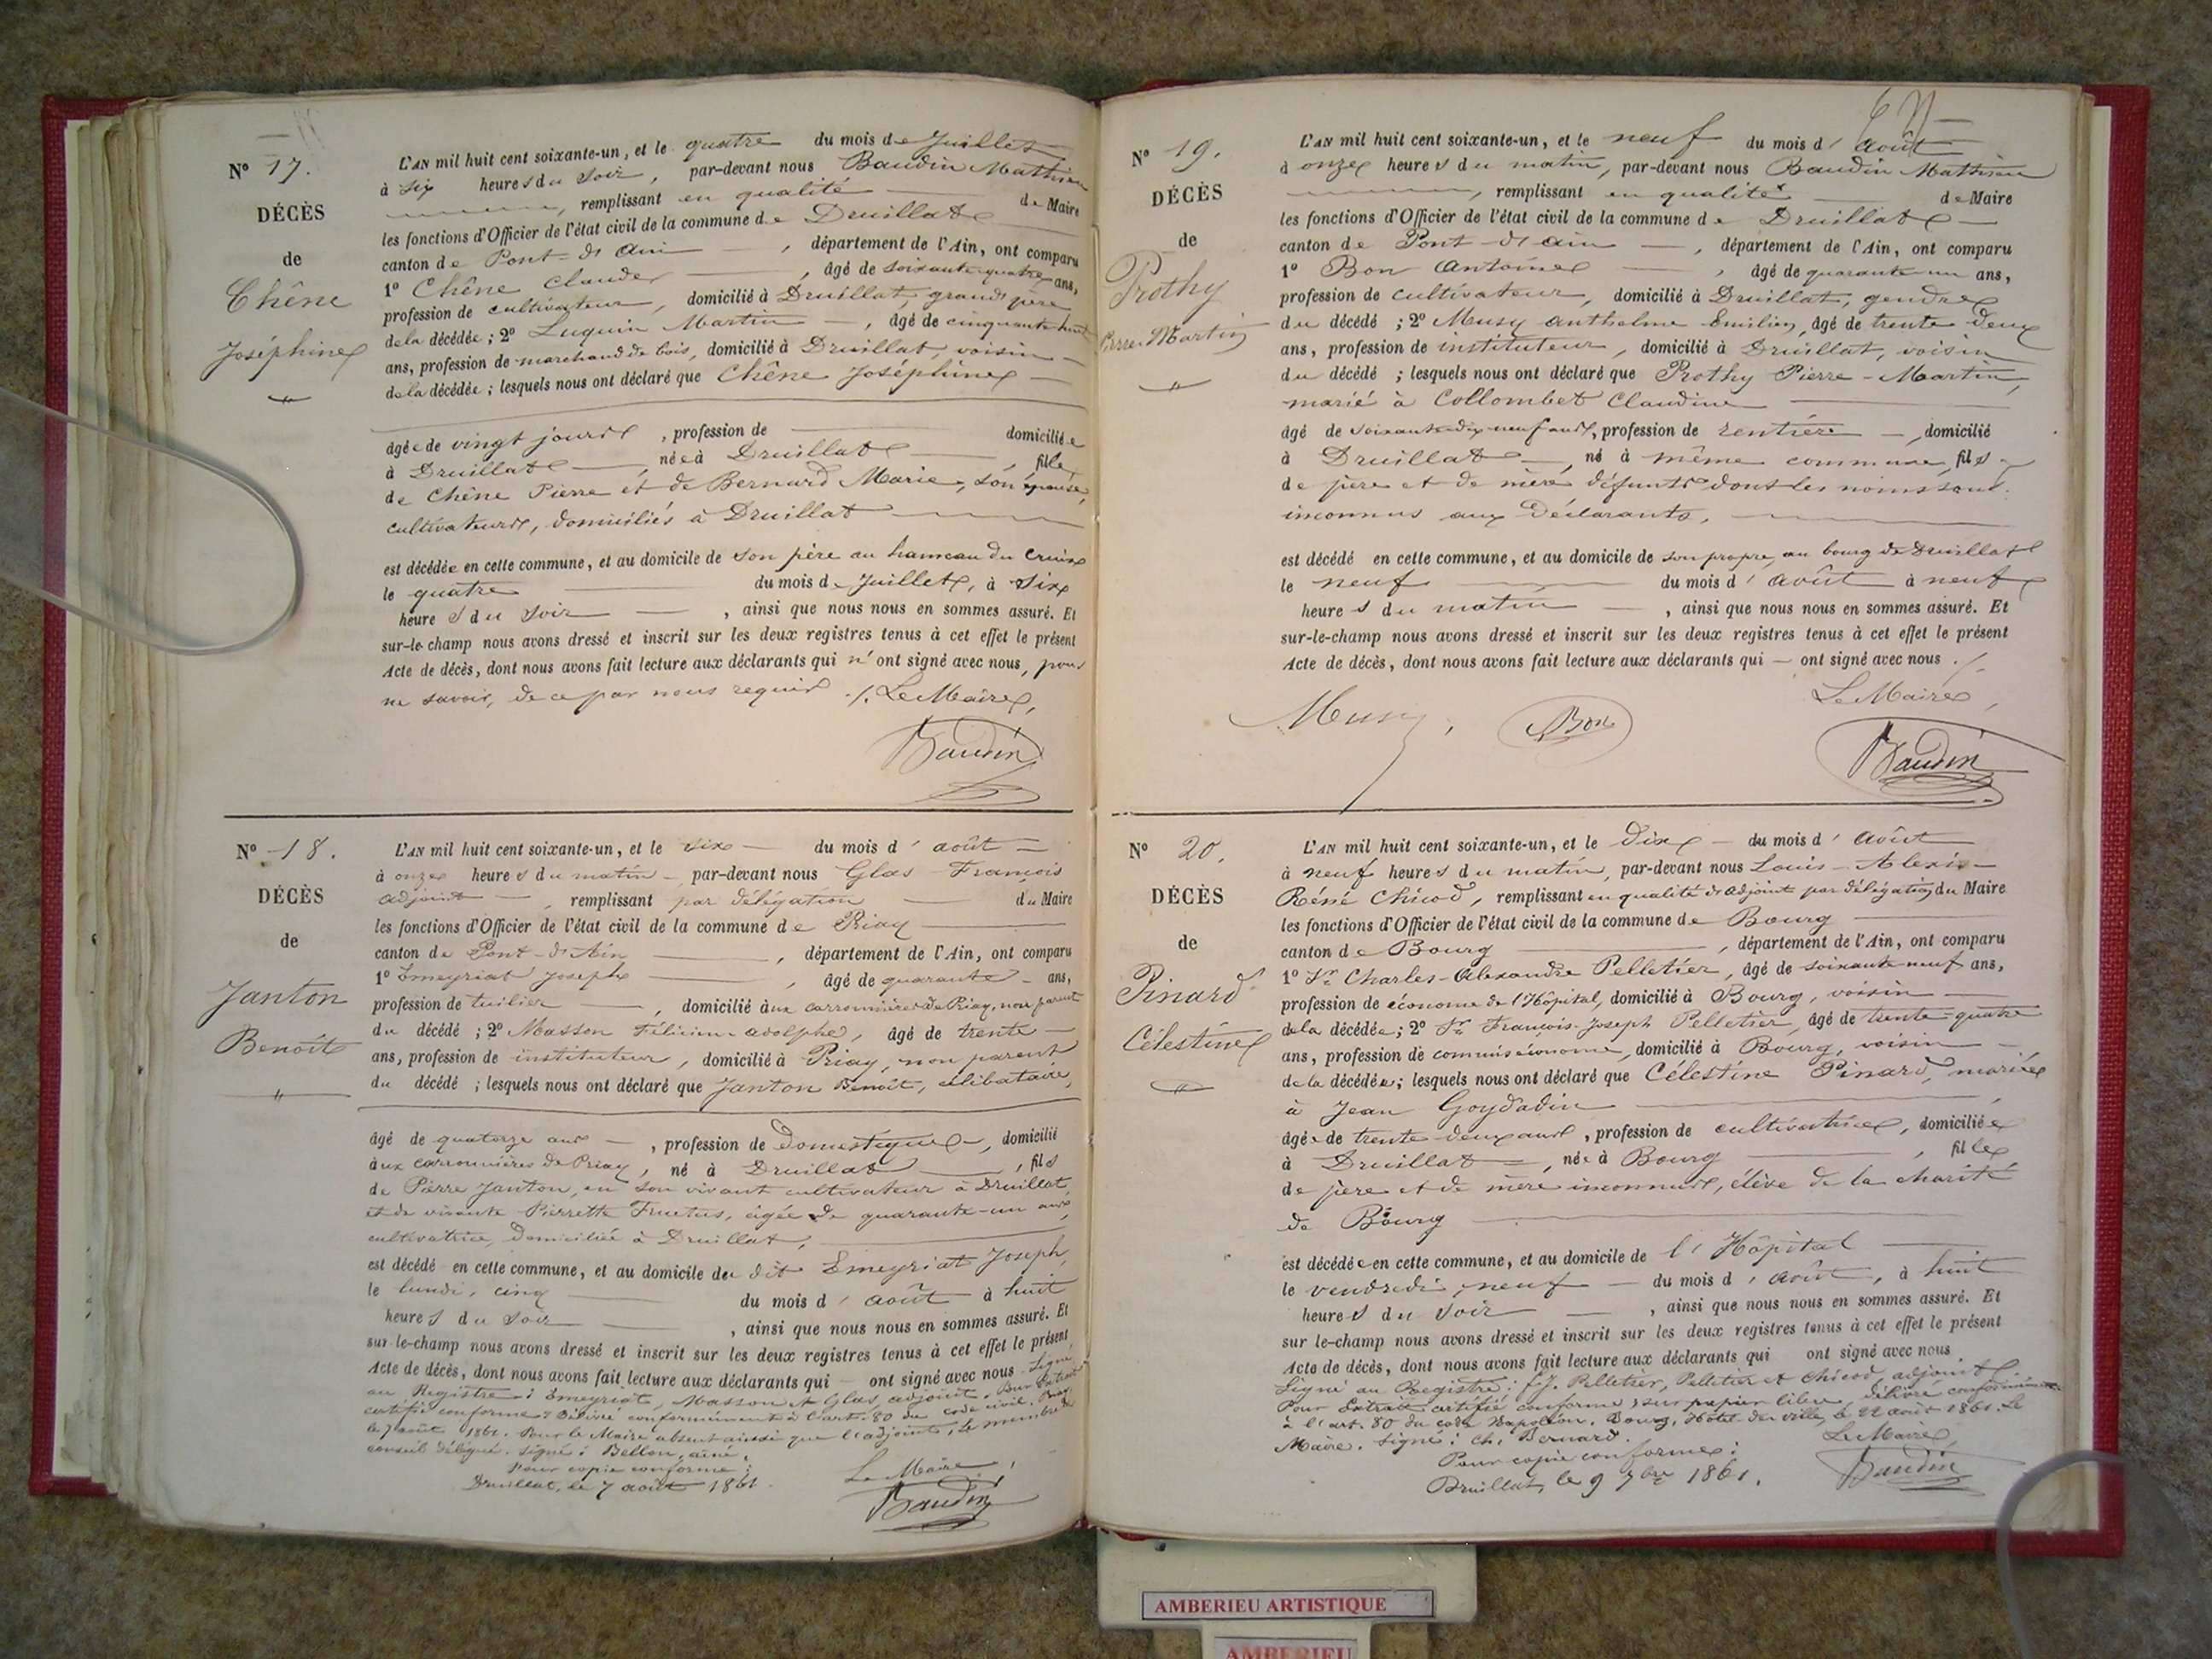 N° 17.
DÉCÈS
de
Chêne
Joséphine
L'AN mil huit cent soixante-un, et le quatre du mois de Juillet
à six heures du soir, par-devant nous Baudin Mathieu
remplissant en qualité de Maire
les fonctions d'Officier de l'état civil de la commune de Druillat
canton de Pont-d'Ain, département de l'Ain, ont comparu
1° Chêne Claude, âgé de soixante-quatre ans,
profession de cultivateur, domicilié à Druillat, grand père
de la décédée ; 2° Luquin Martin, âgé de cinquante huit
ans, profession de marchand de bois, domicilié à Druillat, voisin
de la décédée ; lesquels nous ont déclaré que Chêne Joséphine
âgée de vingt jours, profession de domiciliée
à Druillat, née à Druillat, fille
de Chêne Pierre et de Bernard Marie, son épouse,
cultivateurs, domiciliés à Druillat
est décédée en cette commune, et au domicile de son père au hameau du
le quatre du mois de Juillet, à six
heures du soir, ainsi que nous nous en sommes assuré. Et
sur-le-champ nous avons dressé et inscrit sur les deux registres tenus à cet effet le présent
Acte de décès, dont nous avons fait lecture aux déclarants qui n'ont signé avec nous, pour
ne savoir, de ce par nous requis ./. Le Maire,
Baudin
N° 18.
DÉCÈS
de
Janton
Benoît
L'AN mil huit cent soixante-un, et le six du mois d'août
à onze heures du matin par-devant nous Glas François
adjoint, remplissant par délégation du Maire
les fonctions d'Officier de l'état civil de la commune de Priay
canton de Pont-d'Ain, département de l'Ain, ont comparu
1° Emeyriat Joseph, âgé de quarante ans,
profession de tuilier, domicilié aux carronnières de Priay, non parent
du décédé ; 2° Masson Félicien adolphe, âgé de trente
ans, profession de instituteur, domicilié à Priay, non parent
du décédé ; lesquels nous ont déclaré que Janton Benoît, célibataire,
âgé de quatorze ans, profession de Domestique, domicilié
aux carronnières de Priay, né à Druillat, fils
de Pierre Janton, en son vivant cultivateur à Druillat,
et de vivante Pierrette Fructus, âgée de quarante-un ans,
cultivatrice, domiciliée à Druillat,
est décédé en cette commune, et au domicile du dit Emeyriat Joseph,
le lundi, cinq du mois d'août à huit
heures du soir, ainsi que nous nous en sommes assuré. Et
sur-le-champ nous avons dressé et inscrit sur les deux registres tenus à cet effet le présent
Acte de décès, dont nous avons fait lecture aux déclarants qui ont signé avec nous. Signé
au Registre : Emeyriat, Masson et Glas, adjoint. Pour Extrait
certifié conforme & délivré conformément à l'art. 80 du code civil. Priay
le 7 août 1861. Pour le Maire absent ainsi que l'adjoint, le membre du
conseil délégué. signé : Bellon, aîné.
Pour copie conforme :
Druillat, le 7 août 1861.
Le Maire,
Baudin
N° 19.
DÉCÈS
de
Prothy
Pierre-Martin
L'AN mil huit cent soixante-un, et le neuf du mois d'août
à onze heures du matin, par-devant nous Baudin Mathieu
remplissant en qualité de Maire
les fonctions d'Officier de l'état civil de la commune de Druillat
canton de Pont-d'ain, département de l'Ain, ont comparu
1° Bon Antoine, âgé de quarante un ans,
profession de cultivateur, domicilié à Druillat, gendre
du décédé ; 2° Musy anthelme Emilien, âgé de trente deux
ans, profession de instituteur, domicilié à Druillat, voisin
du décédé ; lesquels nous ont déclaré que Prothy Pierre-Martin,
marié à Collombet Claudine
âgé de soixante-dix-neuf ans, profession de rentière, domicilié
à Druillat, né à même commune, fils
de père et de mère défunts dont les noms sont
inconnus aux Déclarants,
est décédé en cette commune, et au domicile de son propre, au bourg de Druillat
le neuf du mois d'août à neuf
heures du matin, ainsi que nous nous en sommes assuré. Et
sur-le-champ nous avons dressé et inscrit sur les deux registres tenus à cet effet le présent
Acte de décès, dont nous avons fait lecture aux déclarants qui — ont signé avec nous ./.
Le Maire,
Musy, Bon
Baudin
N° 20.
DÉCÈS
de
Pinard
Célestine
L'AN mil huit cent soixante-un, et le dix du mois d'août
à neuf heures du matin, par-devant nous Louis-Alexis-
Réné Chicod, remplissant en qualité d'adjoint par délégation du Maire
les fonctions d'Officier de l'état civil de la commune de Bourg
canton de Bourg, département de l'Ain, ont comparu
1° Sr Charles-Alexandre Pelletier, âgé de soixante neuf ans,
profession de économe de l'Hôpital, domicilié à Bourg, voisin
de la décédée ; 2° Sr François-Joseph Pelletier, âgé de trente-quatre
ans, profession de commis économe, domicilié à Bourg, voisin
de la décédée ; lesquels nous ont déclaré que Célestine Pinard, mariée
à Jean Goydadin
âgée de trente-deux ans, profession de cultivatrice, domiciliée
à Druillat, née à Bourg, fille
de père et de mère inconnus, élève de la charité
de Bourg
est décédée en cette commune, et au domicile de l'Hôpital
le vendredi, neuf du mois d'août, à huit
heures du soir, ainsi que nous nous en sommes assuré. Et
sur le-champ nous avons dressé et inscrit sur les deux registres tenus à cet effet le présent
Acte de décès, dont nous avons fait lecture aux déclarants qui ont signé avec nous.
Signé au Registre : f. J. Pelletier, Pelletier et Chicod, adjoint
Pour Extrait certifié conforme, sur papier libre, délivré conformément
à l'art. 80 du code Napoléon. Bourg, Hôtel de ville, le 22 août 1861. Le
Maire. signé : Ch. Bernard.
Le Maire,
Pour copie conforme :
Druillat, le 9 7bre 1861.
Baudin
AMBERIEU ARTISTIQUE
AMBERIEU